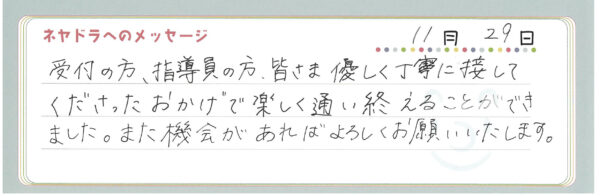 ネヤドラへのメッセージ 11月 29日
受付の方、指導員の方、皆さま優しく丁寧に接して
くださったおかげで楽しく通い終えることができ
ました。また機会があればよろしくお願いいたします。